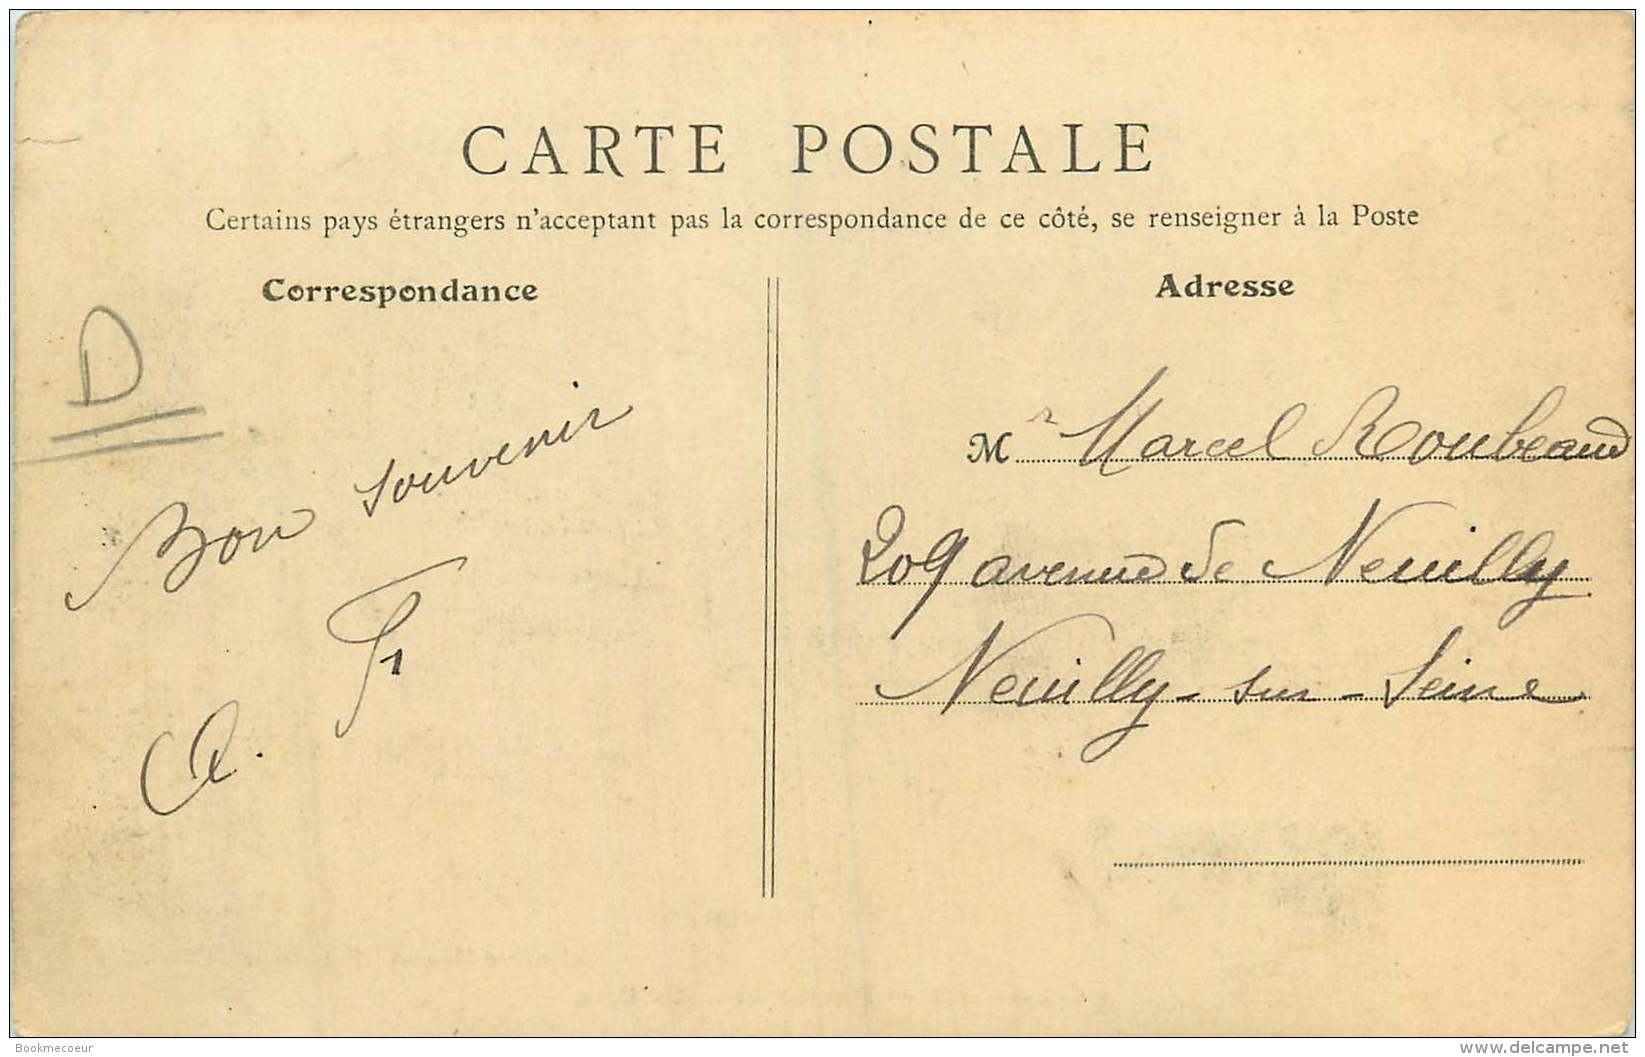 CARTE POSTALE
Certains pays étrangers n'acceptant pas la correspondance de ce côté, se renseigner à la Poste
Correspondance
D
Bon souvenir
A. F
Adresse
Mr Marcel Roubeaud
209 avenue de Neuilly
Neuilly-sur-Seine
Bookmecoeur
www.delcampe.net